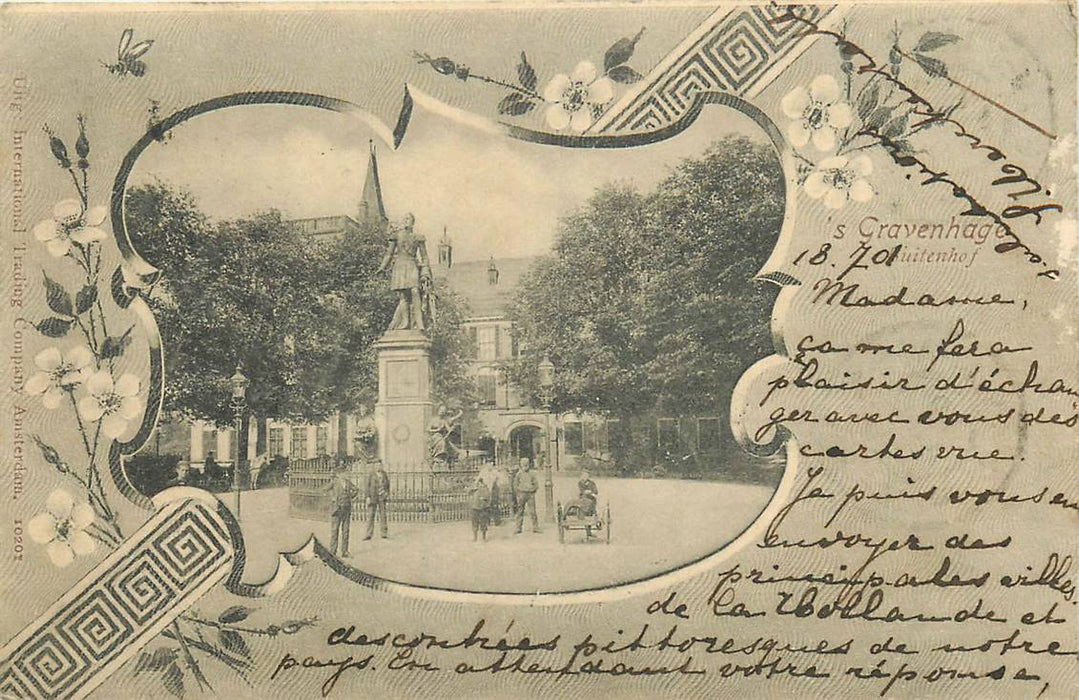 's Gravenhage
Buitenhof
18.7.01
Madame,
ça me fera
plaisir d'échan
ger avec vous des
cartes vue.
Je puis vous en
envoyer des
principales villes
de la Hollande et
des contrées pittoresques de notre
pays. En attendant votre réponse,
Uitg: International Trading Company Amsterdam. 10201